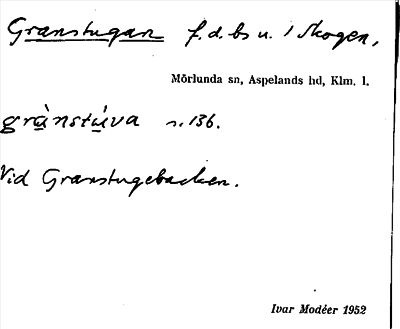 Granstugan f.d. bs u. i skogen,
Mörlunda sn, Aspelands hd, Klm. l.
grànstúva n. 136.
Vid Granstugebacken.
Ivar Modéer 1952